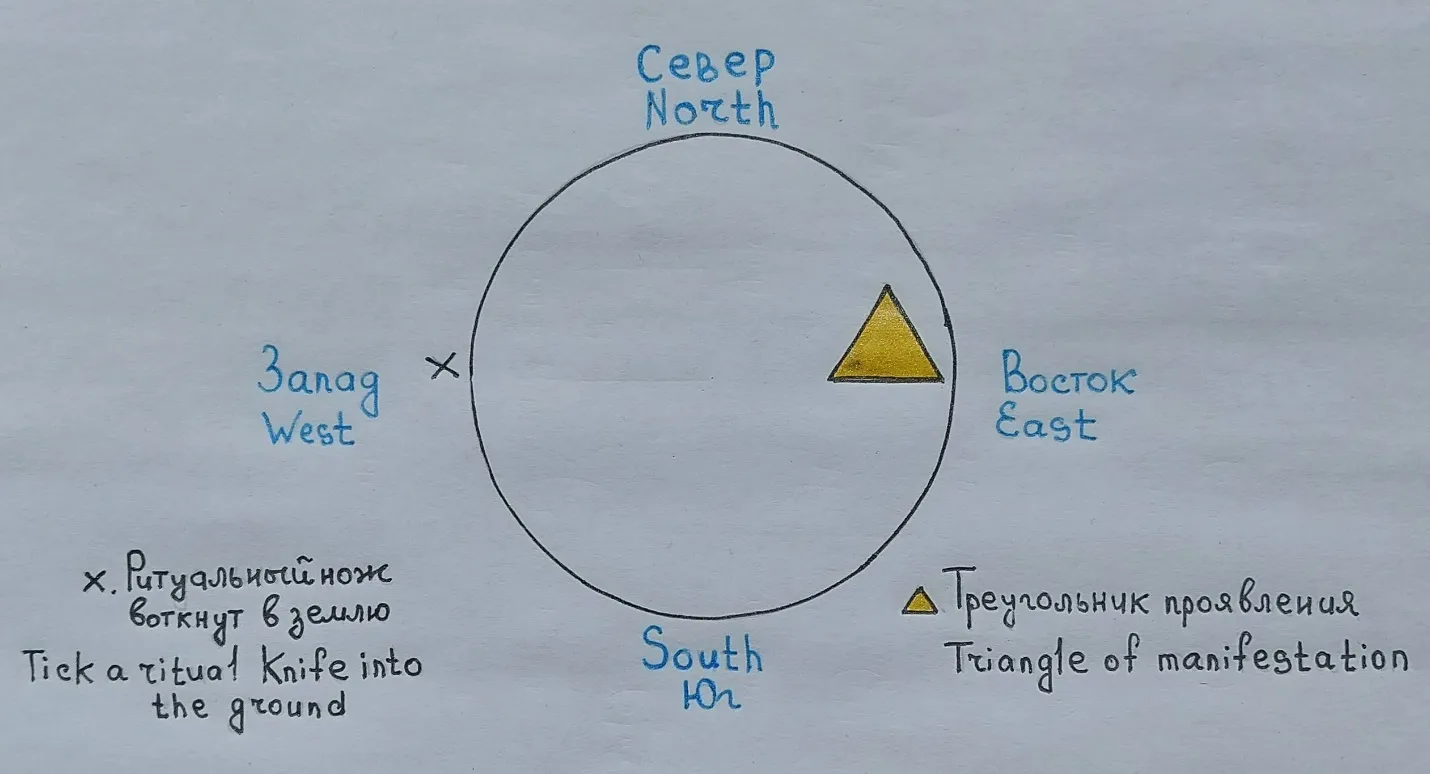 Север
North
Запад
West
Восток
East
South
Юг
x. Ритуальный нож
воткнут в землю
Tick a ritual Knife into
the ground
Треугольник проявления
Triangle of manifestation